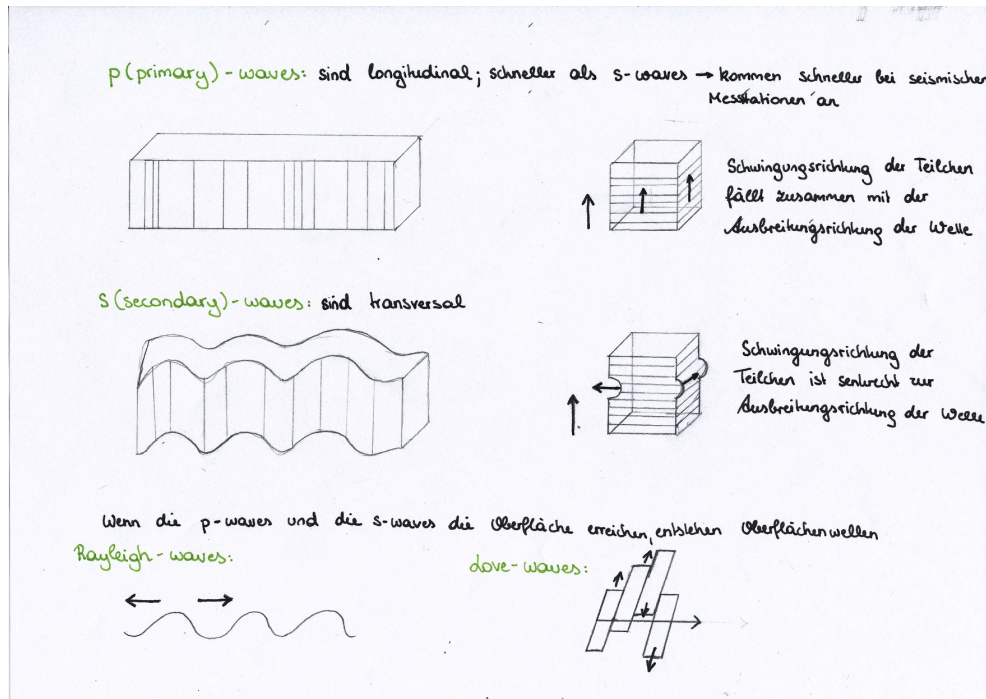 p(primary)-waves: sind longitudinal; schneller als s-waves → kommen schneller bei seismischen
Messstationen an
Schwingungsrichtung der Teilchen
fällt zusammen mit der
Ausbreitungsrichtung der Welle
s(secondary)-waves: sind transversal
Schwingungsrichtung der
Teilchen ist senkrecht zur
Ausbreitungsrichtung der Welle
Wenn die p-waves und die s-waves die Oberfläche erreichen, entstehen Oberflächenwellen
Rayleigh-waves:
Love-waves: